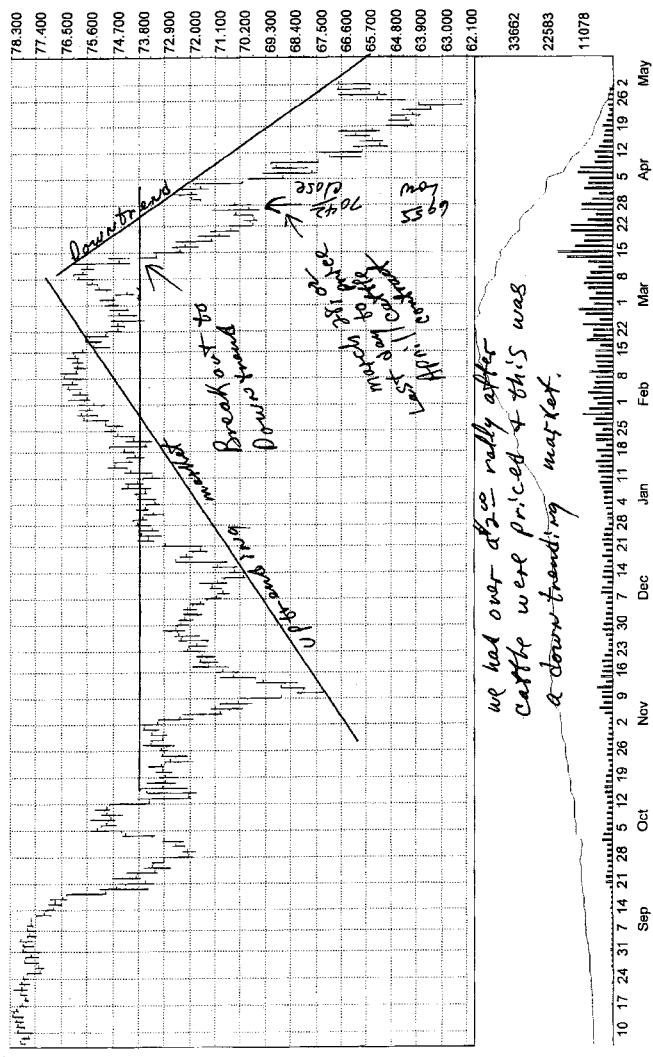 78.300
77.400
76.500
75.600
74.700
73.800
72.900
72.000
71.100
70.200
69.300
68.400
67.500
66.600
65.700
64.800
63.900
63.100
33662
22583
11078
Downtrend
Breakout to
Downtrend
Uptrending market
7042
close
6955
Low
march 28 or
Last day to price
April Cattle
contract
we had over a $2.00 rally after
cattle were priced & this was
a down trending market.
10 17 24 31 7 14 21 28 5 12 19 26 2 9 16 23 30 7 14 21 28 4 11 18 25 1 8 15 22 1 8 15 22 28 5 12 19 26 2
Sep Oct Nov Dec Jan Mar Apr May